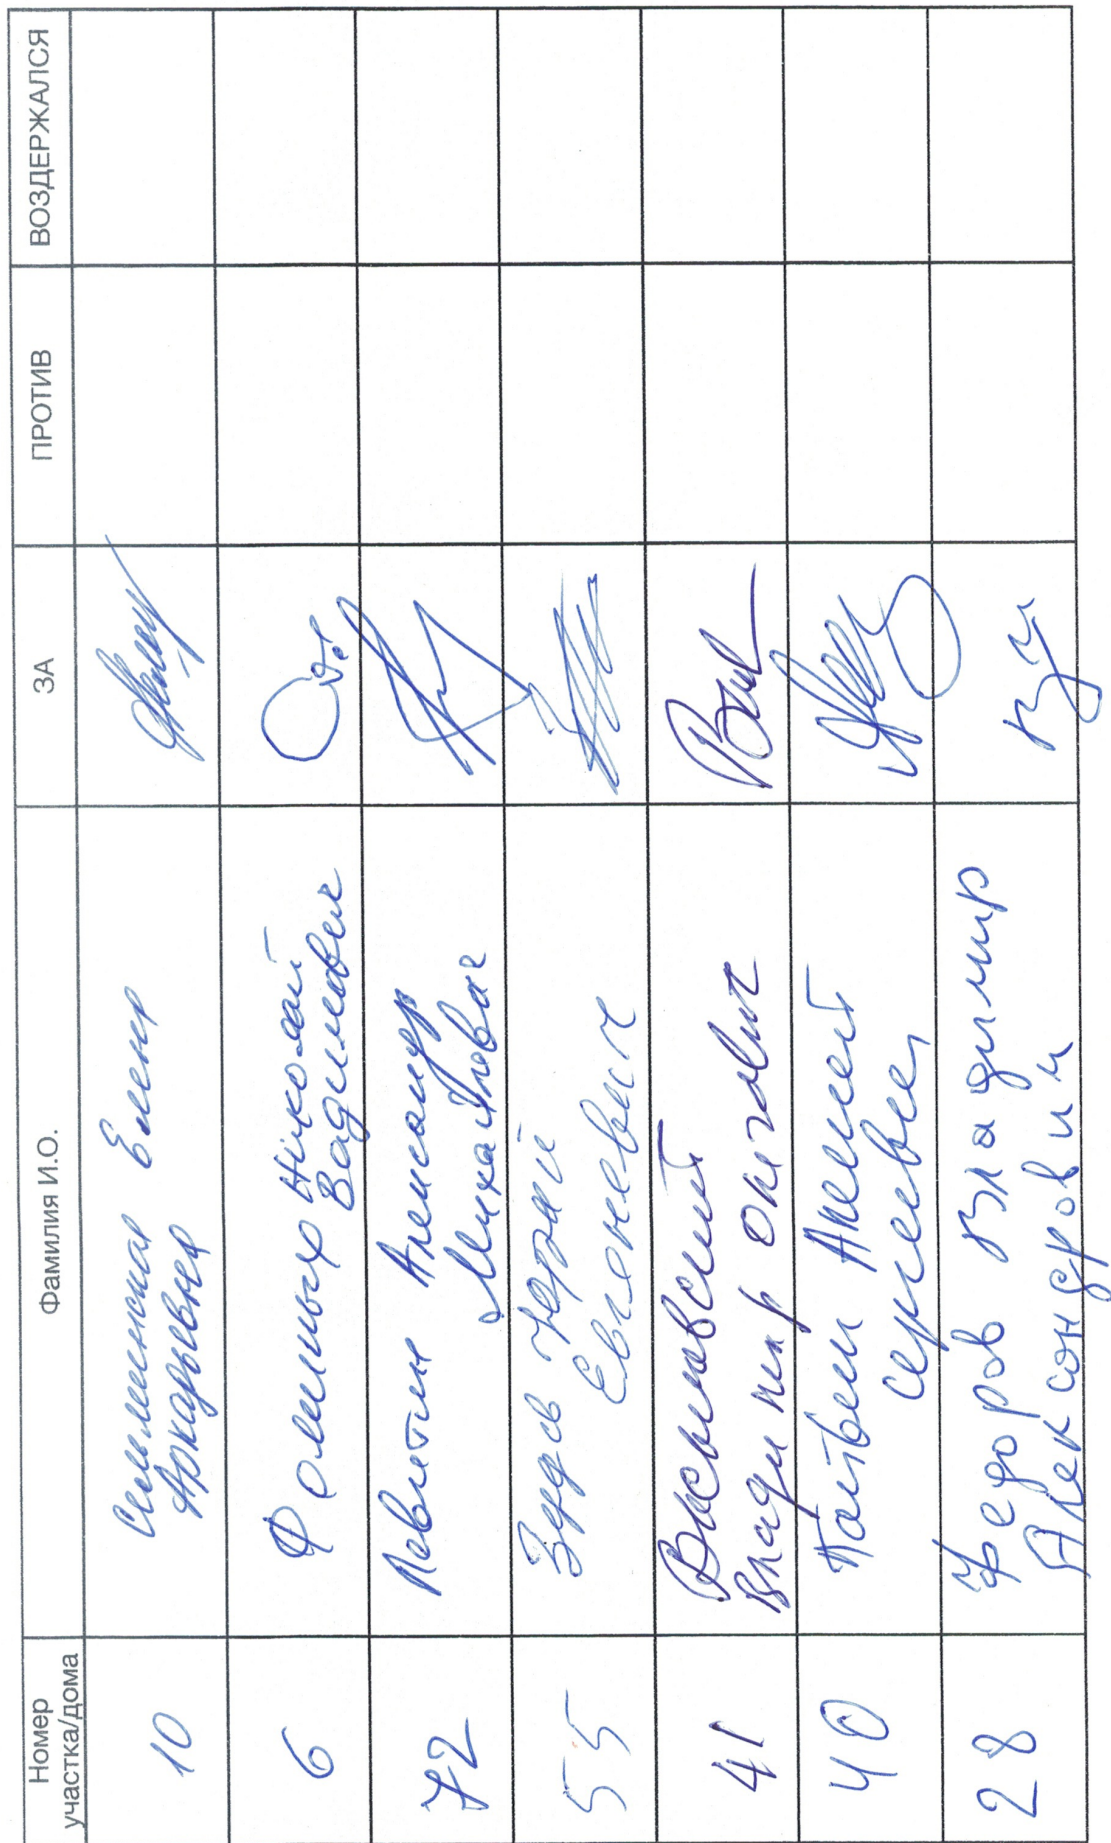 Номер участка/дома Фамилия И.О. ЗА ПРОТИВ ВОЗДЕРЖАЛСЯ
10 Елена
Аркадьевна
6 Фоминых Николай
Вадимович
72 Левитин Александр
Михайлович
55 Юрий
Евгеневич
41 Высыпавский
Владимир
40 Алексей
Сергеевич
28 Федоров Владимир
Александрович